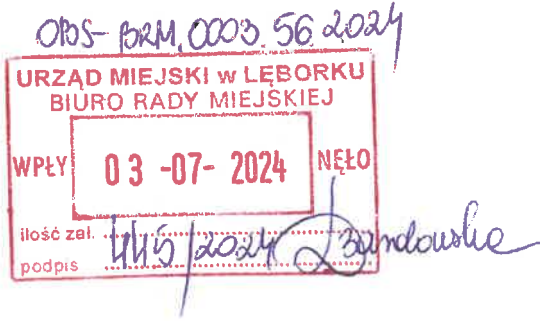 OPiS-BRM.0003.56.2024
URZĄD MIEJSKI w LĘBORKU
BIURO RADY MIEJSKIEJ
WPŁY 03 -07- 2024 NĘŁO
ilość zał.
445/2024
podpis